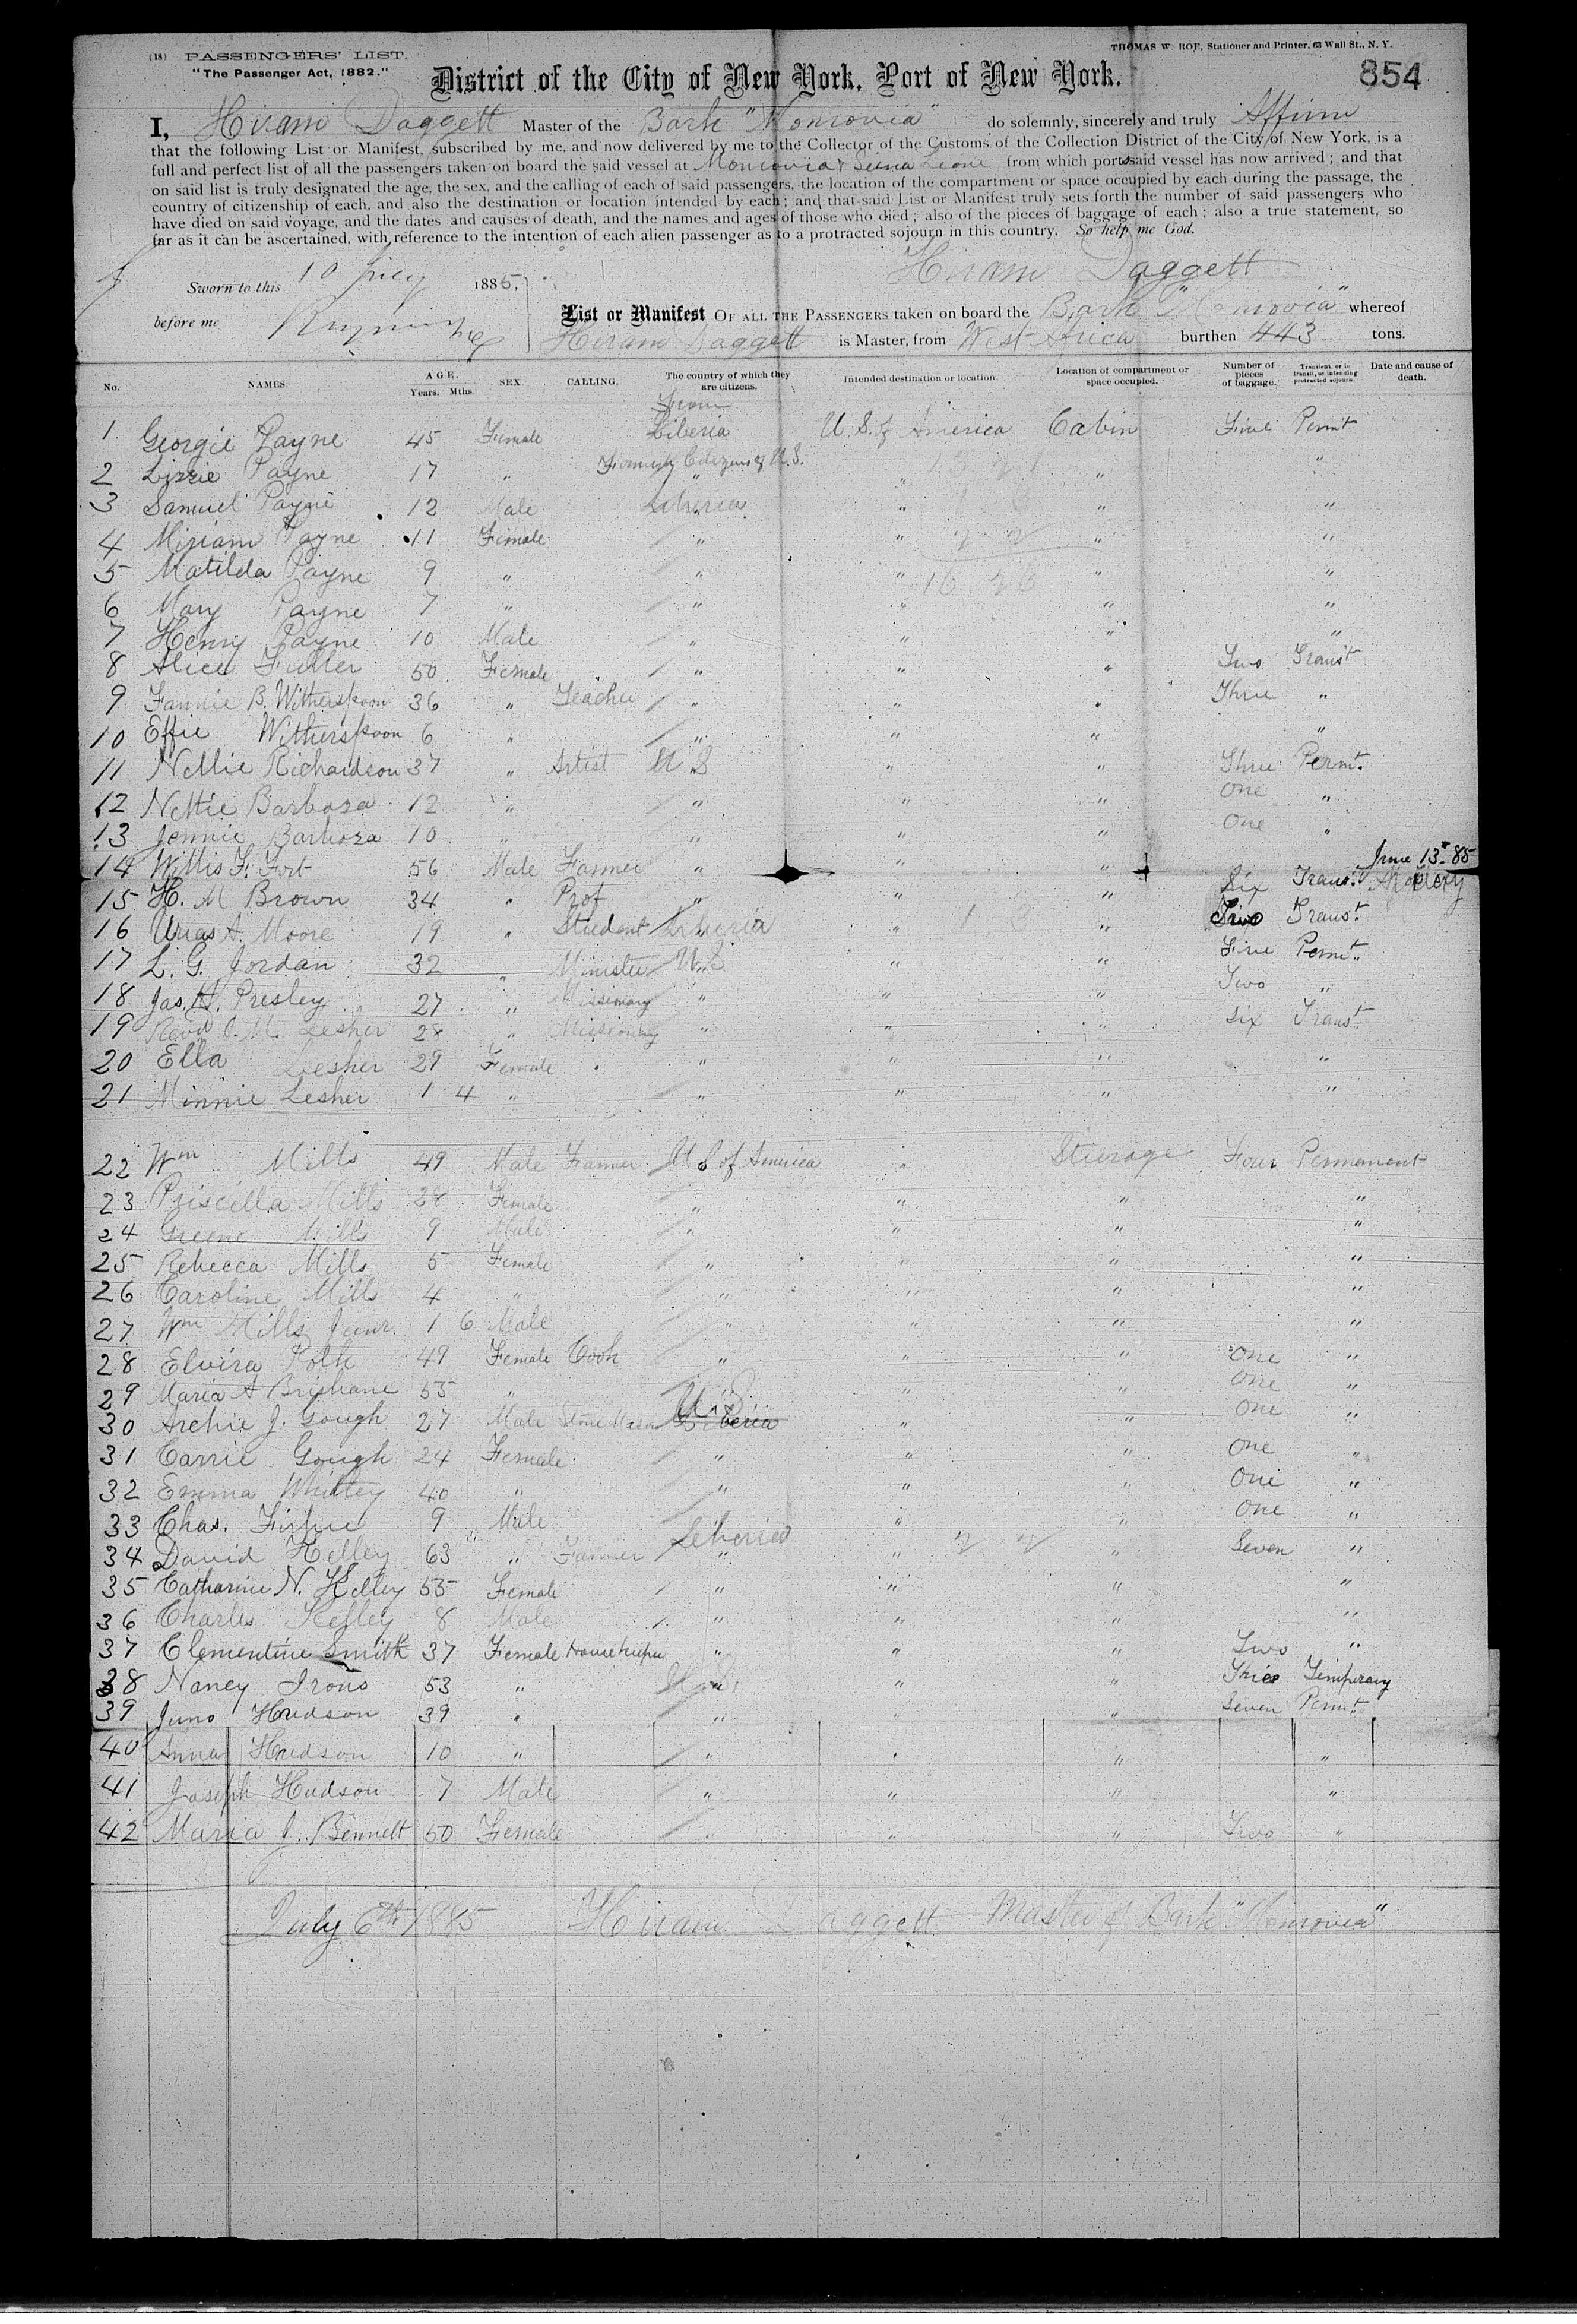 (18) PASSENGERS' LIST. THOMAS W. ROE, Stationer and Printer, 63 Wall St., N. Y.
"The Passenger Act, 1882."
District of the City of New York, Port of New York. 854
I, Hiram Daggett Master of the Bark "Monrovia" do solemnly, sincerely and truly Affirm
that the following List or Manifest, subscribed by me, and now delivered by me to the Collector of the Customs of the Collection District of the City of New York, is a
full and perfect list of all the passengers taken on board the said vessel at Monrovia & Siera Leone from which port said vessel has now arrived; and that
on said list is truly designated the age, the sex, and the calling of each of said passengers, the location of the compartment or space occupied by each during the passage, the
country of citizenship of each, and also the destination or location intended by each; and that said List or Manifest truly sets forth the number of said passengers who
have died on said voyage, and the dates and causes of death, and the names and ages of those who died; also of the pieces of baggage of each; also a true statement, so
far as it can be ascertained, with reference to the intention of each alien passenger as to a protracted sojourn in this country. So help me God.
Hiram Daggett
Sworn to this 10 July 1885.
before me
List or Manifest OF ALL THE PASSENGERS taken on board the Bark "Monrovia" whereof
Hiram Daggett is Master, from West Africa burthen 443 tons.
No. NAMES. AGE. Years. Mths. SEX. CALLING. The country of which they are citizens. Intended destination or location. Location of compartment or space occupied. Number of pieces of baggage. Transient, or in transit, or intending protracted sojourn. Date and cause of death.
From
1 Georgie Payne 45 Female Liberia U. S. of America Cabin Five Permt
Formerly Citizens of U.S.
2 Lizzie Payne 17 " " " " "
3 Samuel Payne 12 Male Liberia " " "
4 Miriam Payne 11 Female " " " "
5 Matilda Payne 9 " " " " "
6 Mary Payne 7 " " " " "
7 Henry Payne 10 Male " " " "
8 Alice Fuller 50 Female " " " Two Transt
9 Fannie B. Witherspoon 36 " Teacher " " " Three "
10 Effie Witherspoon 6 " " " " "
11 Nellie Richardson 37 " Artist U S " " Three Permt.
12 Nettie Barboza 12 " " " " One "
13 Jennie Barboza 10 " " " " One "
June 13th 85
14 Willis F. Fort 56 Male Farmer " " " Six Transt Apoplexy
15 H. M Brown 34 " Prof " " " Two Transt.
16 Urias A. Moore 19 " Student Liberia " "
17 L. G. Jordan 32 " Minister U.S " " Five Permt.
18 Jas. H. Presley 27 " Missionary " " " Two "
19 Revd J. M. Lesher 28 " Missionary " " " Six Transt
20 Ella Lesher 29 Female " " " " "
21 Minnie Lesher 1 4 " " " " "
22 Wm Mills 49 Male Farmer U S of America " Steerage Four Permanent
23 Priscilla Mills 28 Female " " " "
24 Greene Mills 9 Male " " " "
25 Rebecca Mills 5 Female " " " "
26 Caroline Mills 4 " " " " "
27 Wm Mills Junr 1 6 Male " " " "
28 Elvira Polk 49 Female Cook " " " One "
29 Maria A Brisbane 55 " " " " One "
30 Archie J. Gough 27 Male Stone Mason U.S Liberia " " One "
31 Carrie Gough 24 Female " " " One "
32 Emma Whitley 40 " " " " One "
33 Chas. 9 Male " " One "
34 David Kelley 63 " Farmer Liberia " " Seven "
35 Catharine N. Kelley 55 Female " " " "
36 Charles Kelley 8 Male " " " "
37 Clementine Smith 37 Female Housekeeper " " " Two "
38 Nancy Irons 53 " U.S. " " Three Temperary
39 Juno Hudson 39 " " " " Seven Permt.
40 Anna Hudson 10 " " " " "
41 Joseph Hudson 7 Male " " " "
42 Maria J. Bennett 50 Female " " " Two "
July 6th 1885 Hiram Daggett Master of Bark "Monrovia"